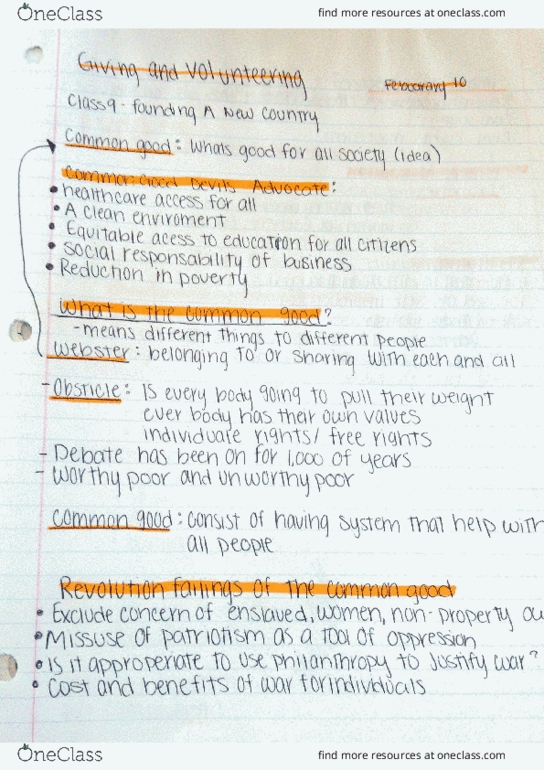 OneClass
find more resources at oneclass.com
Giving and Volunteering
Feboarary 10
Class 9 - founding A New Country
Common good: Whats good for all society (idea)
Common Good Devils Advocate:
• healthcare access for all
• A clean enviroment
• Equitable acess to education for all citizens
• Social responsability of business
• Reduction in poverty
What is the common good?
- means different things to different people
Webster: belonging to or sharing with each and all
- Obsticle: Is every body going to pull their weight
ever body has their own values
individuale rights/ free rights
- Debate has been on for 1,000 of years
- Worthy poor and unworthy poor
Common good: Consist of having system that help with
all people
Revolution failings of the common good
• Exclude concern of enslaved, women, non-property ou
• Missuse of patriotism as a tool of oppression
• Is it approperiate to use philanthropy to justify war?
• Cost and benefits of war for individuals
OneClass
find more resources at oneclass.com